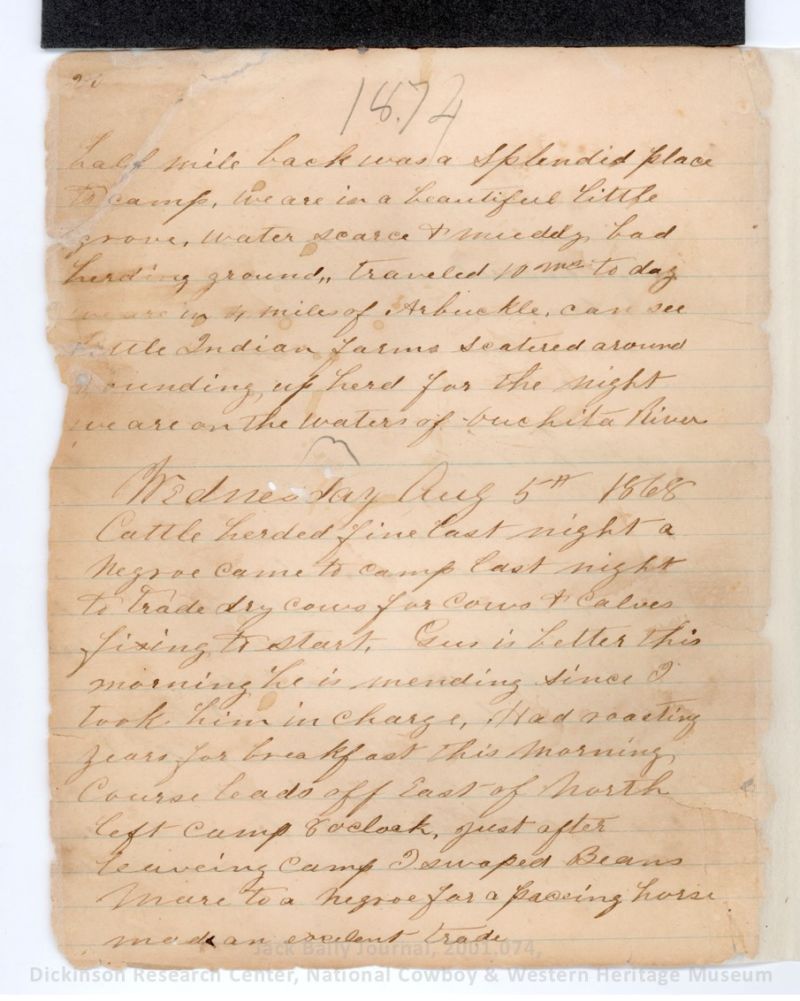 20
18.74
half mile back was a splendid place
to camp, we are in a beautiful little
grove, water scarce & muddy, bad
herding ground,, traveled 10 mls to day
we are in 4 miles of Arbuckle, can see
little Indian farms scatered around
rounding up herd for the night
we are on the waters of ouchita River
Wednesday Aug 5th 1868
Cattle herded fine last night a
Negroe came to camp last night
to trade dry cows for cows & calves
fixing to start. Gus is better this
morning he is mending since I
took him in charge, Had roasting
years for breakfast this morning
Course leads off East of North
left camp 8 oclock, just after
leaveing camp I swaped Beans
Mare to a Negroe for a paceing horse
made an excelent trade
Jack Baily Journal, 2001.074,
Dickinson Research Center, National Cowboy & Western Heritage Museum